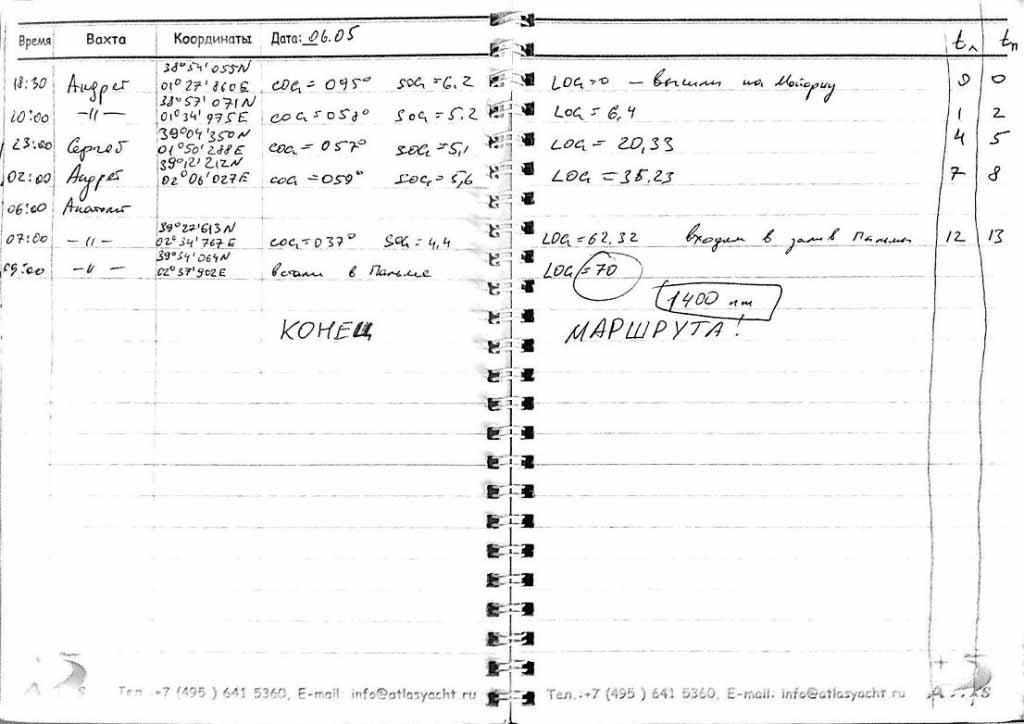 Время Вахта Координаты Дата: 06.05 tл tп
38°54'055N
18:30 Андрей 01°27'860E COG = 095° SOG = 6,2 LOG = 0 — вышли на Майорку 0 0
38°57'071N
20:00 —"— 01°34'975E COG = 058° SOG = 5,2 LOG = 6,4 1 2
39°04'350N
23:00 Сергей 01°50'288E COG = 057° SOG = 5,1 LOG = 20,33 4 5
39°12'212N
02:00 Андрей 02°06'027E COG = 059° SOG = 5,6 LOG = 35,23 7 8
06:00 Анатолий
39°27'613N
07:00 —"— 02°34'767E COG = 037° SOG = 4,4 LOG = 62,32 входим в залив Пальмы 12 13
39°34'064N
09:00 —"— 02°37'902E встали в Пальме LOG = 70
1400
КОНЕЦ МАРШРУТА!
Тел.:+7 (495 ) 641 5360, E-mail: info@atlasyacht.ru Тел.:+7 (495 ) 641 5360, E-mail: info@atlasyacht.ru